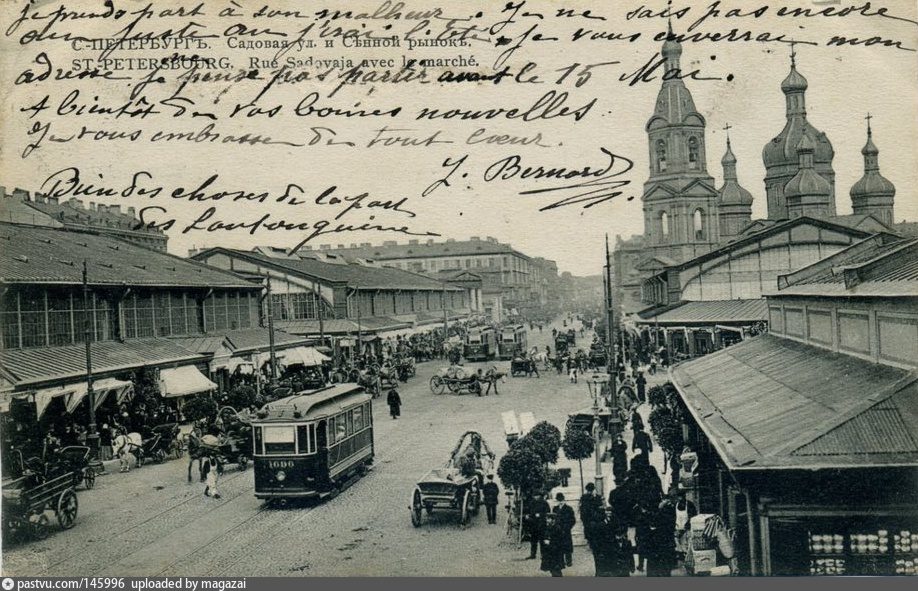 je prends part à son malheur. Je ne sais pas encore
du juste au j'irai l'été. Je vous enverrai mon
С-ПЕТЕРБУРГЪ. Садовая ул. и Сѣнной рынокъ.
adresse je pense pas partir avant le 15 Mai.
ST-PETERSBOURG. Rue Sadovaja avec le marché.
A bientôt de vos bonnes nouvelles
Je vous embrasse de tout cœur.
J. Bernard
Bien des choses de la part
des
1096
pastvu.com/145996 uploaded by magazai